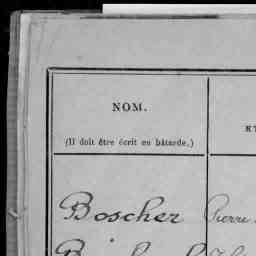 NOM.
(Il doit être écrit en bâtarde.)
ET
Boscher Pierre